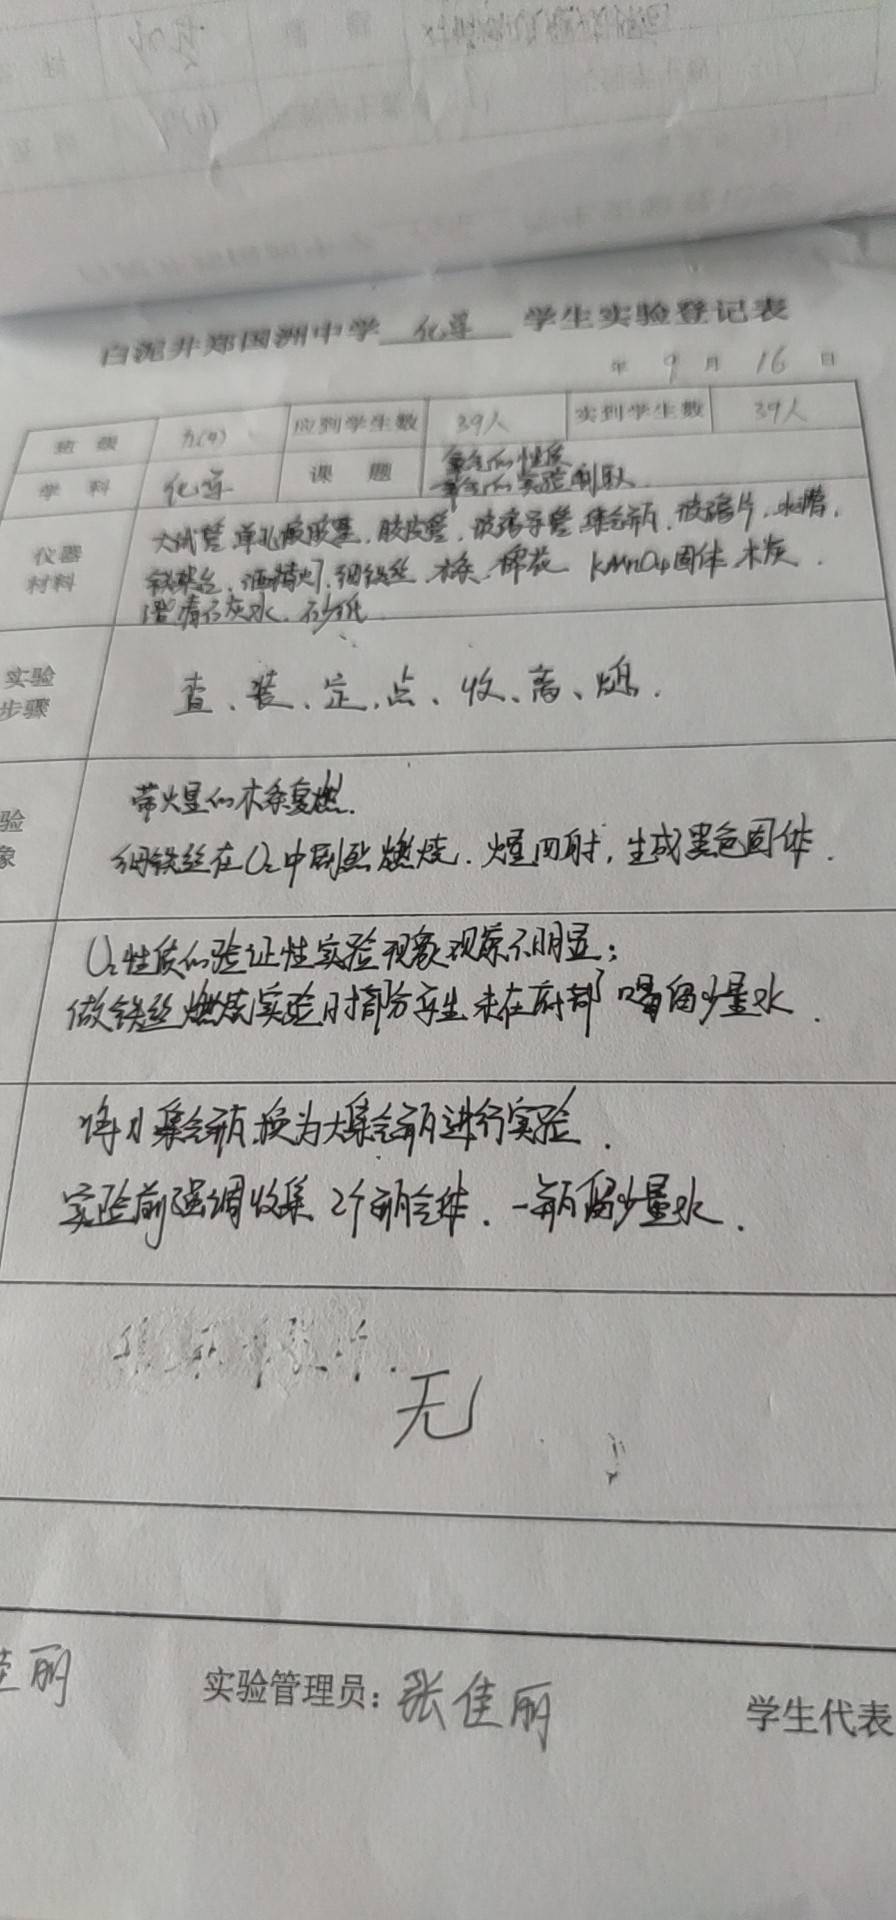 白泥井郑国洲中学 化学 学生实验登记表
年 9 月 16 日
班 级 九(4) 应到学生数 39人 实到学生数 39人
学 科 化学 课 题 氧气的性质
氧气的实验制取
仪器
材料
大试管 单孔橡胶塞，胶皮管，玻璃导管 集气瓶，玻璃片，水槽，
铁架台，酒精灯，细铁丝，木条，棉花 KMnO4固体 木炭，
澄清石灰水，砂纸
实验
步骤
查、装、定、点、收、离、熄．
验
象
带火星的木条复燃．
细铁丝在O₂中剧烈燃烧．火星四射，生成黑色固体．
O₂性质的验证性实验现象观察不明显；
做铁丝燃烧实验时部分学生未在底部 留少量水．
将小集气瓶换为大集气瓶进行实验．
实验前强调收集 2个瓶气体．一瓶留少量水．
无
佳丽 实验管理员：张佳丽 学生代表